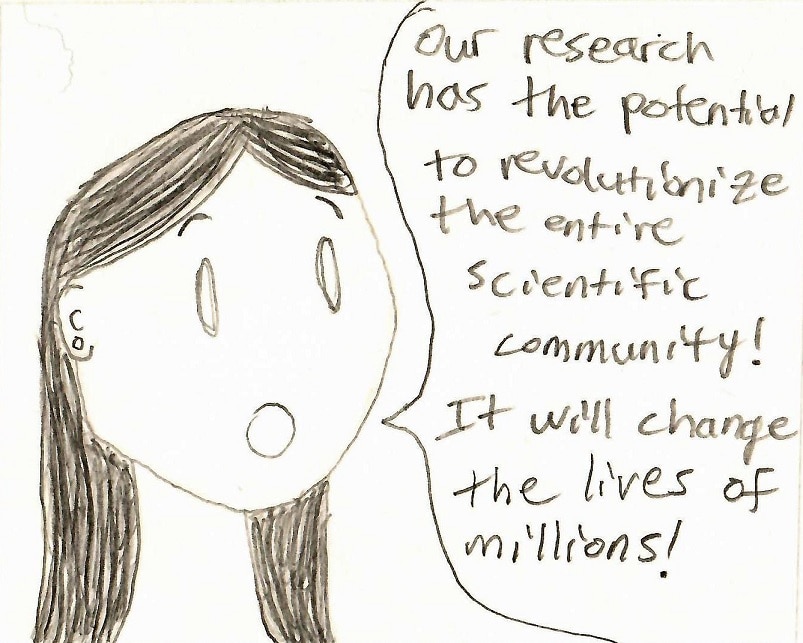 Our research
has the potential
to revolutionize
the entire
scientific
community!
It will change
the lives of
millions!